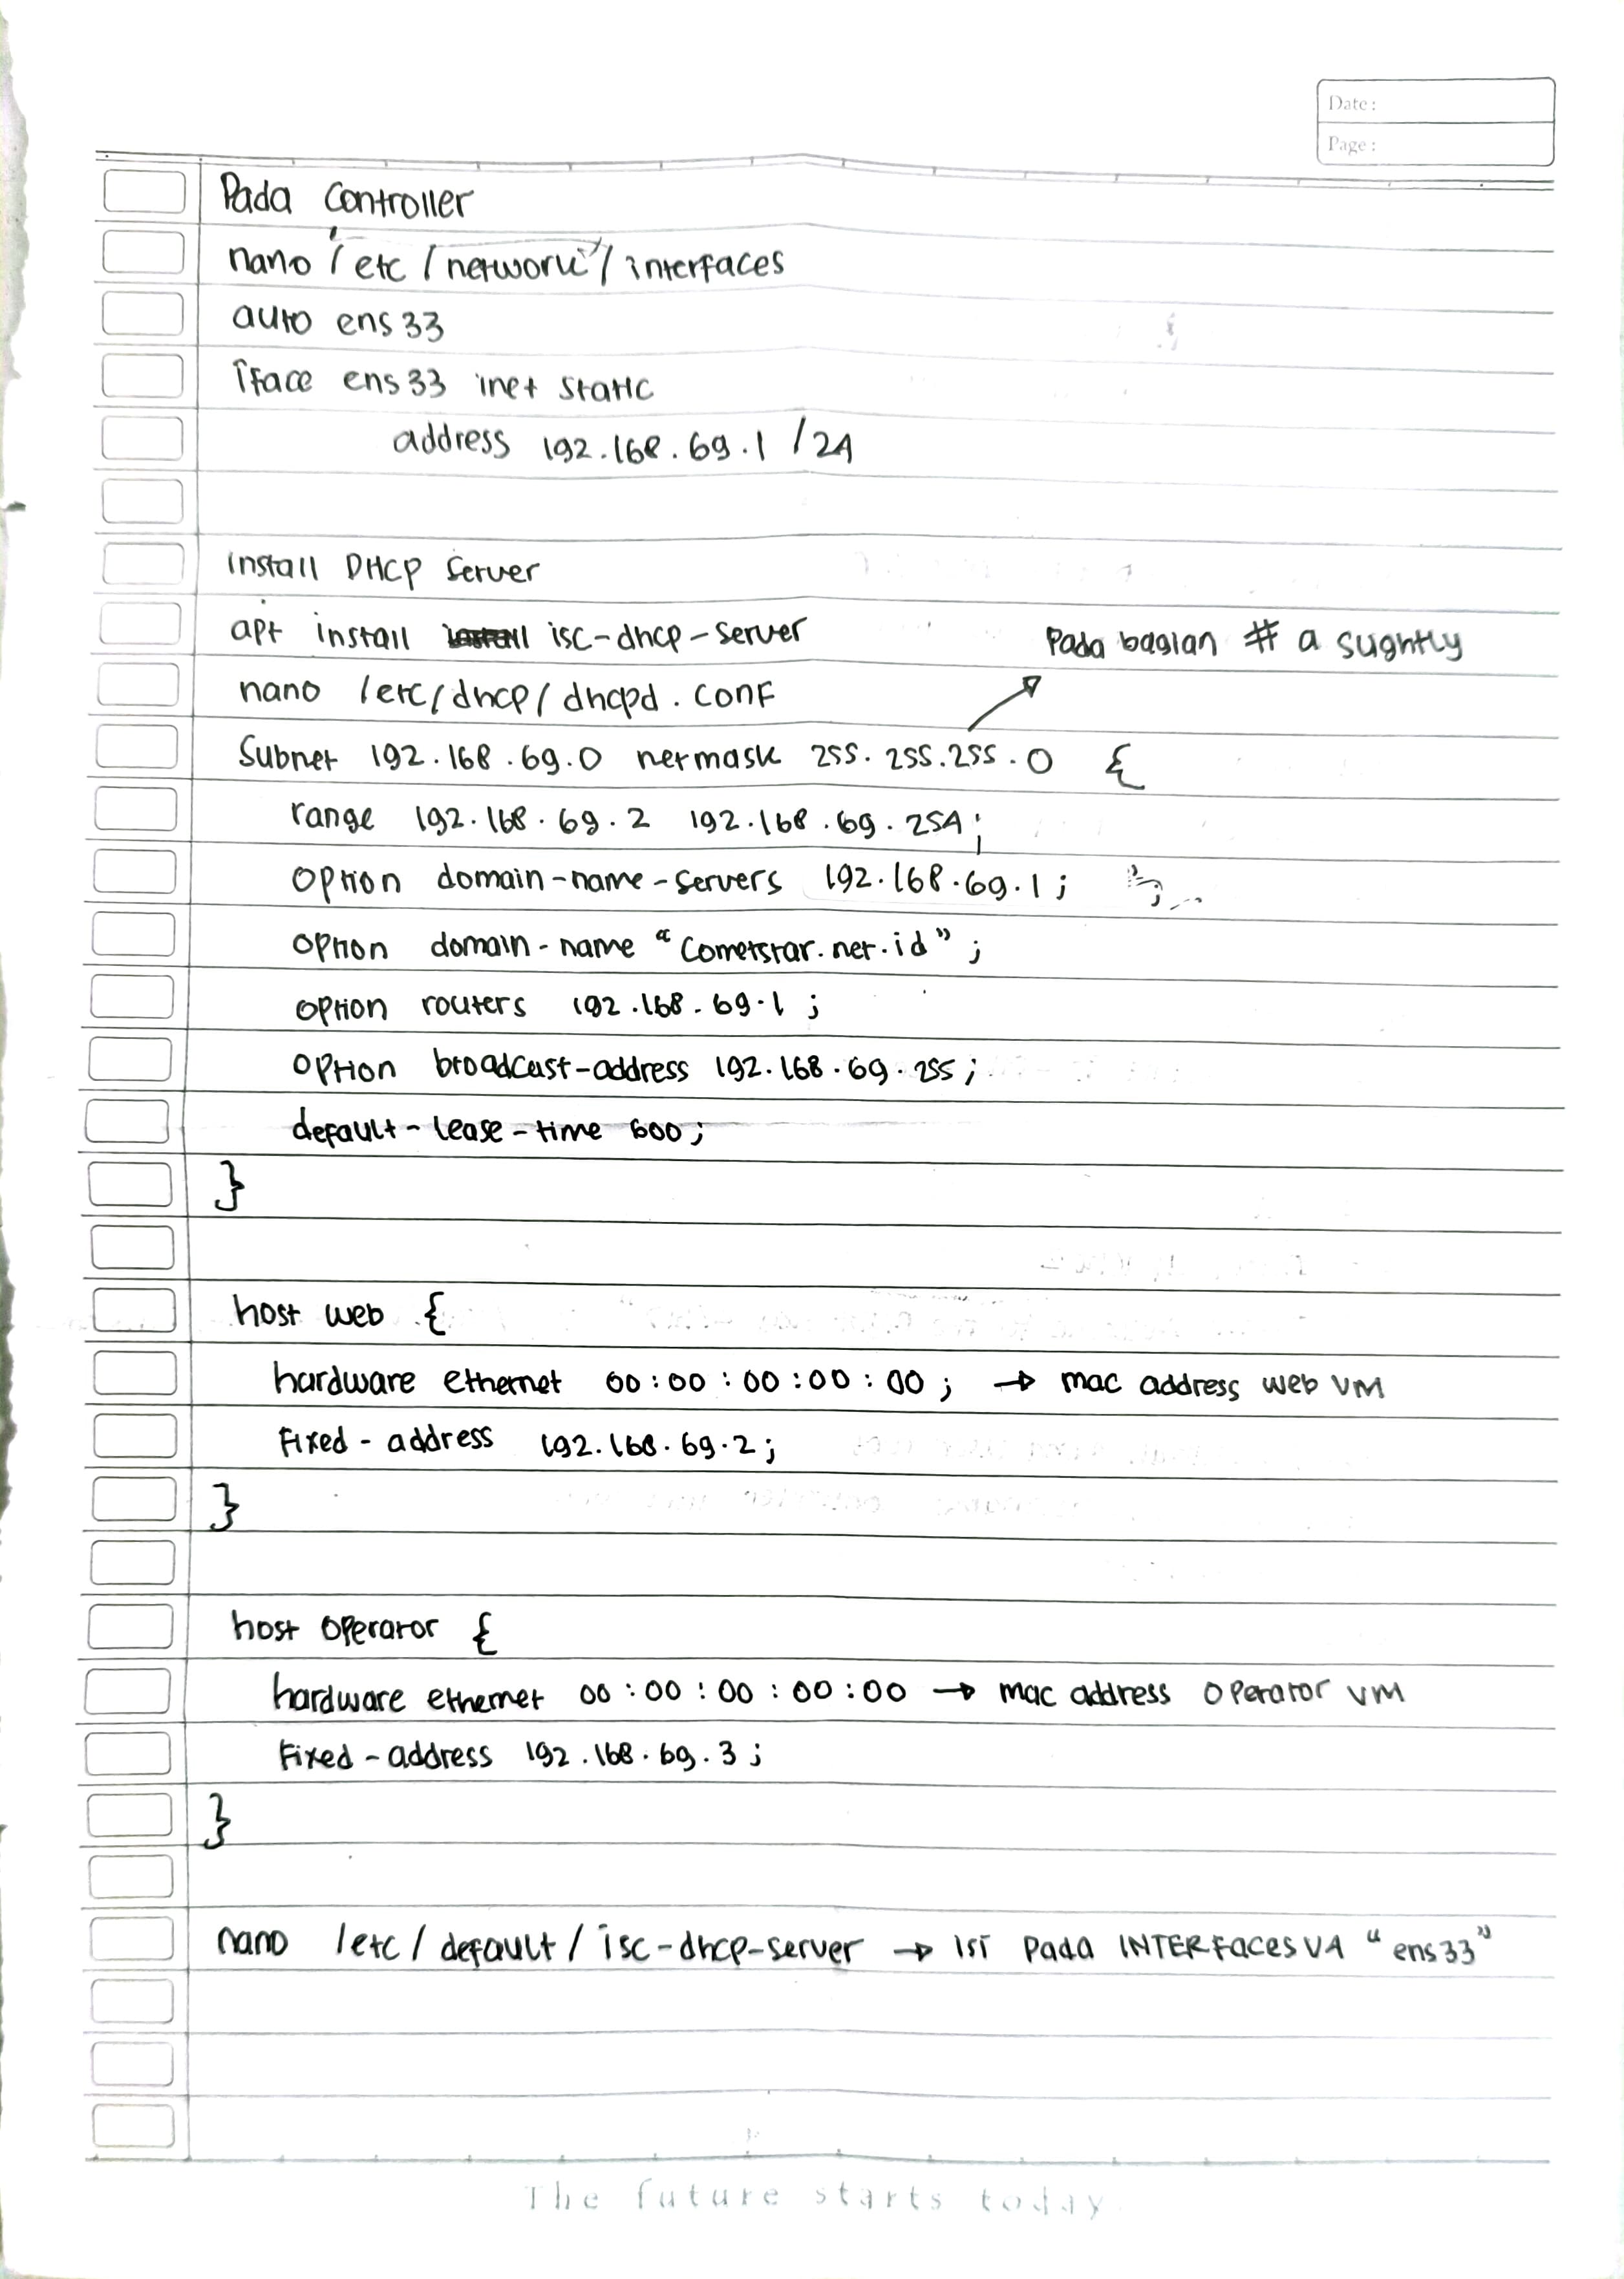 Date:
Page:
Pada Controller
nano /etc/network/interfaces
auto ens33
iface ens33 inet static
address 192.168.69.1 /24
install DHCP Server
apt install isc-dhcp-server
Pada bagian # a slightly
nano /etc/dhcp/dhcpd.conf
Subnet 192.168.69.0 netmask 255.255.255.0 {
range 192.168.69.2 192.168.69.254;
option domain-name-servers 192.168.69.1;
option domain-name "Cometstar.net.id";
option routers 192.168.69.1;
option broadcast-address 192.168.69.255;
default-lease-time 600;
}
host web {
hardware ethernet 00:00:00:00:00; → mac address web VM
Fixed-address 192.168.69.2;
}
host operator {
hardware ethernet 00:00:00:00:00 → mac address operator VM
Fixed-address 192.168.69.3;
}
nano /etc/default/isc-dhcp-server → isi pada INTERFacesV4 "ens33"
The future starts today